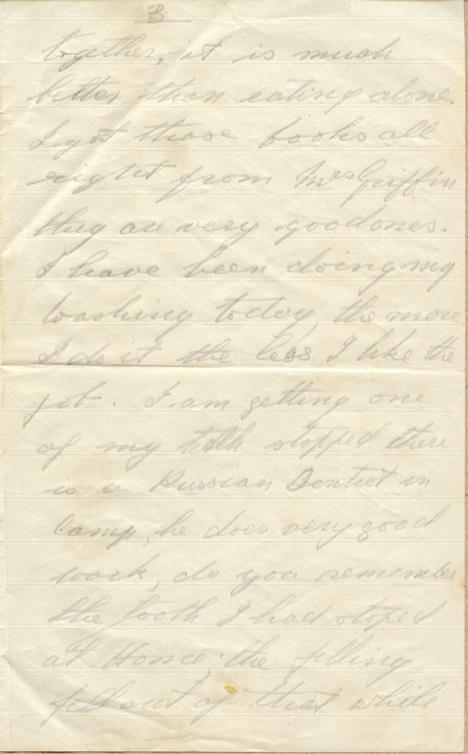 3
together, it is much
better than eating alone.
I got those books all
right from Mrs Griffin
they are very good ones.
I have been doing my
washing today, the more
I do it the less I like the
job. I am getting one
of my teeth stopped there
is a Russian Dentist in
Camp, he does very good
work, do you remember
the tooth I had stoped
at Home; the filling
fell out of that while